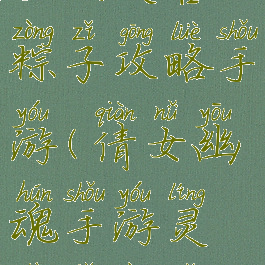 zòng zǐ gōng lüè shǒu
粽子攻略手
yóu qiàn nǚ yōu
游(倩女幽
hún shǒu yóu líng
魂手游灵